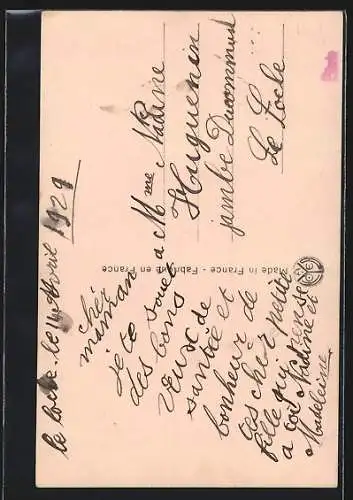 le Locle. le 14 Avril 1929
chér
maman
je te souai
des bons
veux de
santée et
bonheur de
ces cher petite
fille qui pense
a toi Nadine et
Madeleine
a Mme Nadine
Huguenin
jambe Ducommun
Le Locle
Made in France - Fabriqué en France